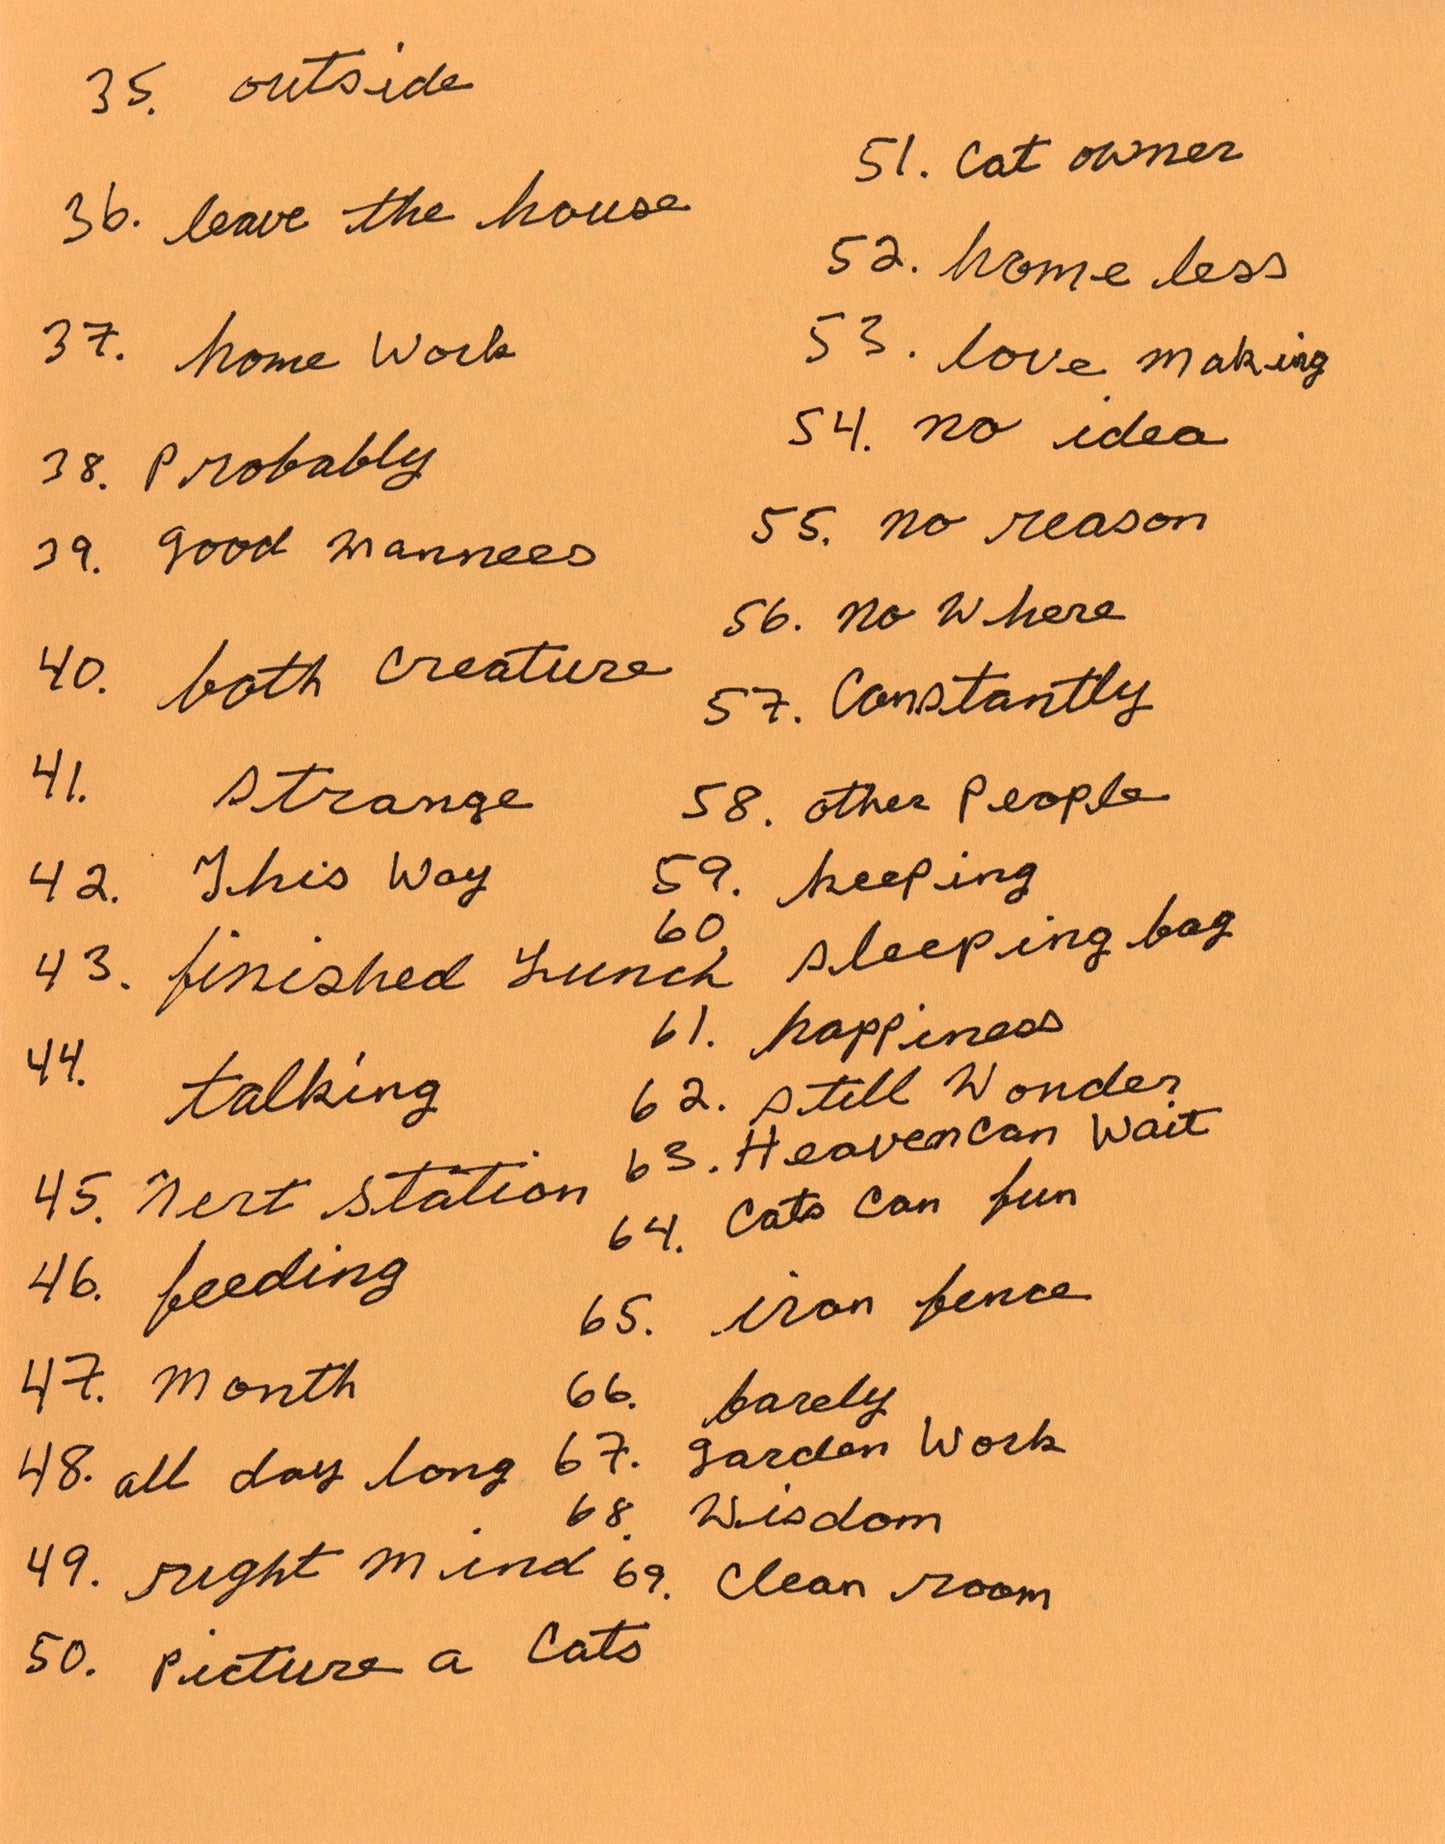 35. outside
36. leave the house
37. home Work
38. Probably
39. good manners
40. both Creature
41. strange
42. This Way
43. finished Lunch
44. talking
45. Next station
46. feeding
47. Month
48. all day long
49. right mind
50. Picture a Cats
51. Cat owner
52. home less
53. love making
54. no idea
55. no reason
56. No Where
57. Constantly
58. other People
59. keeping
60. sleeping bag
61. happiness
62. still Wonder
63. Heaven Can Wait
64. Cats Can fun
65. iron fence
66. barely
67. garden Work
68. Wisdom
69. Clean room